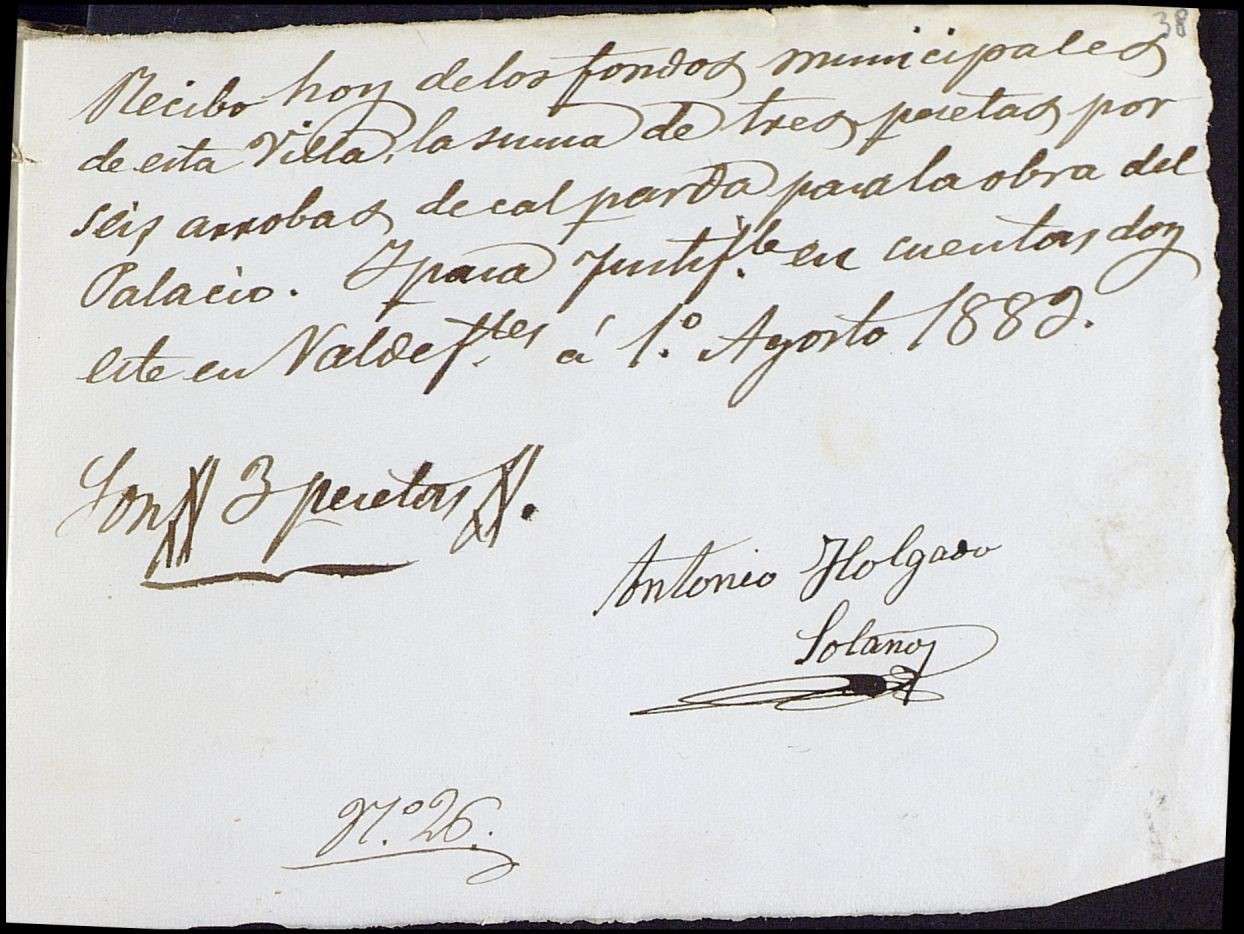 38
Recibo hoy de los fondos municipales
de esta Villa, la suma de tres pesetas por
seis arrobas de cal parda para la obra del
Palacio. Y para justif.te en cuentas doy
este en Valdef.tes á 1.º Agosto 1882.
Son 3 pesetas.
Antonio Holgado
Solano
N.º 26.